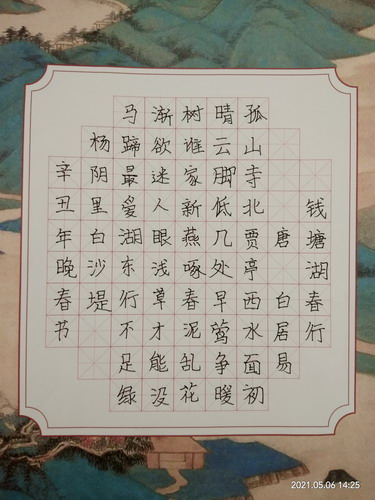 钱塘湖春行
唐 白居易
孤山寺北贾亭西水面初
晴云脚低几处早莺争暖
树谁家新燕啄春泥乱花
渐欲迷人眼浅草才能没
马蹄最爱湖东行不足绿
杨阴里白沙堤
辛丑年晚春书
2021.05.06 14:25